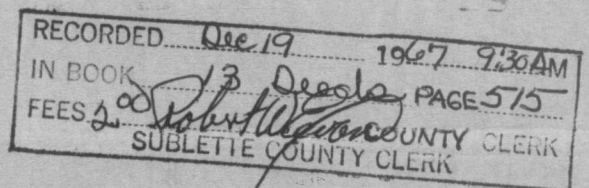 RECORDED Dec 19 1967 9:30 AM
IN BOOK 13 Deeds PAGE 515
FEES 2.00 Robert COUNTY CLERK
SUBLETTE COUNTY CLERK